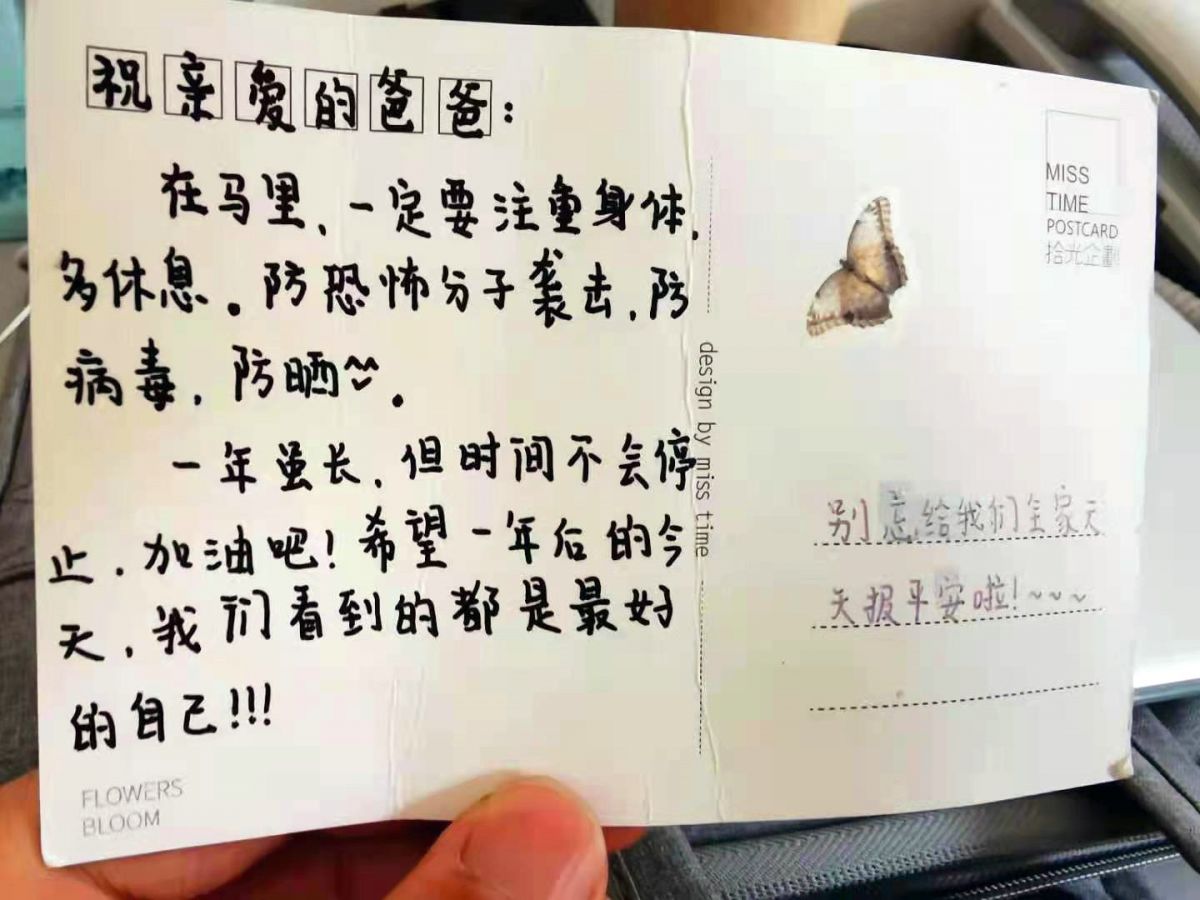 祝亲爱的爸爸：
在马里、一定要注重身体,
多休息。防恐怖分子袭击,防
病毒,防晒~。
一年虽长,但时间不会停
止,加油吧!希望一年后的今
天,我们看到的都是最好
的自己!!!
FLOWERS
BLOOM
design by miss time
MISS
TIME
POSTCARD
拾光企劃
别忘给我们全家天
天报平安啦!~~~